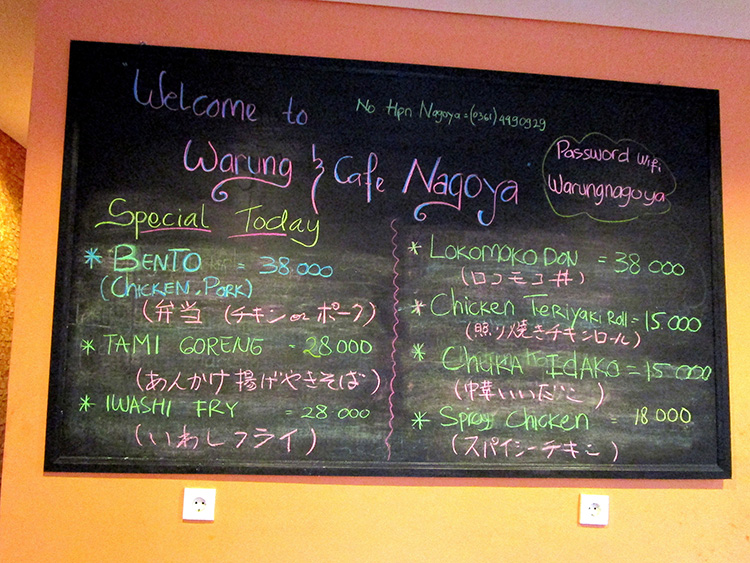 Welcome to
No Hpn Nagoya = (0361) 4490929
Warung & Cafe Nagoya
Password wifi
Warungnagoya
Special Today
* BENTO = 38.000
(CHICKEN.PORK)
(弁当 (チキン or ポーク)
* TAMI GORENG - 28000
(あんかけ揚げやきそば)
* IWASHI FRY = 28 000
(いわしフライ)
* LOKOMOKO DON = 38 000
(ロコモコ丼)
* Chicken Teriyaki Roll = 15.000
(照り焼きチキンロール)
* CHUKA IIDAKO = 15000
(中華いいだこ)
* Spicy Chicken - 18 000
(スパイシーチキン)